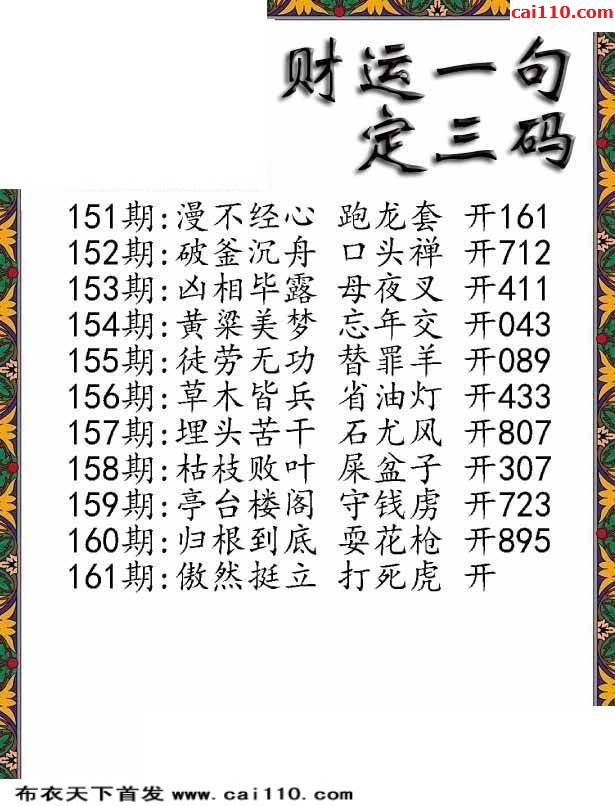 cai110.com
财运一句
定三码
151期:漫不经心 跑龙套 开161
152期:破釜沉舟 口头禅 开712
153期:凶相毕露 母夜叉 开411
154期:黄粱美梦 忘年交 开043
155期:徒劳无功 替罪羊 开089
156期:草木皆兵 省油灯 开433
157期:埋头苦干 石尤风 开807
158期:枯枝败叶 屎盆子 开307
159期:亭台楼阁 守钱虏 开723
160期:归根到底 耍花枪 开895
161期:傲然挺立 打死虎 开
布衣天下首发 www.cai110.com